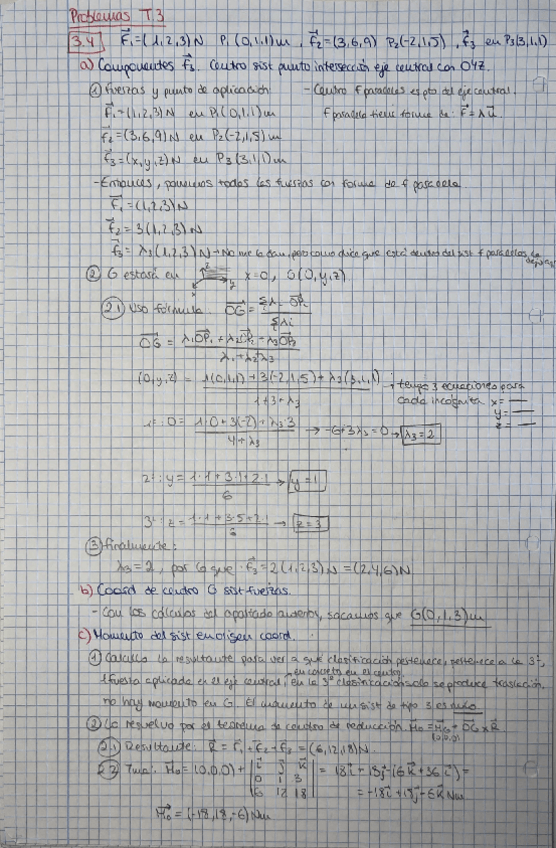 Problemas T.3
3.4 F₁=(1,2,3)N P₁(0,1,1)m, f₂=(3,6,9) P₂(-2,1,5), f₃ en P₃(3,1,1)
a) Componentes f₃. Centro sist punto intersección eje central con OYZ.
① fuerzas y punto de aplicación - Centro f paralelas es pto del eje central.
F₁=(1,2,3)N en P₁(0,1,1)m f paralela tiene forma de: F=λu.
f₂=(3,6,9)N en P₂(-2,1,5)m
f₃=(x,y,z)N en P₃(3,1,1)m
- Entonces, ponemos todas las fuerzas con forma de f paralela
F₁=(1,2,3)N
f₂=3(1,2,3)N
f₃=λ₃(1,2,3)N → No me lo dan, pero como dice que está dentro del sist f paralelas,
② G estará en x=0, G(0,y,z)
2.1 Uso fórmula. OG = Σλᵢ OPᵢ / Σλᵢ
OG = λ₁OP₁+λ₂OP₂+λ₃OP₃ / λ₁+λ₂+λ₃
(0,y,z) = 1(0,1,1)+3(-2,1,5)+λ₃(3,1,1) / 1+3+λ₃ → tengo 3 ecuaciones para
cada incógnita x=
y=
z=
1ª: 0 = 1·0+3(-2)+λ₃3 / 4+λ₃ → -6+3λ₃=0 → λ₃=2
2ª: y = 1·1+3·1+2·1 / 6 → y=1
3ª: z = 1·1+3·5+2·1 / 6 → z=3
③ finalmente:
λ₃=2, por lo que f₃=2(1,2,3)N=(2,4,6)N
b) Coord de centro G sist fuerzas.
- Con los cálculos del apartado anterior, sacamos que G(0,1,3)m
c) Momento del sist en origen coord.
① Calculo la resultante para ver a qué clasificación pertenece, pertenece a la 3ª,
1 fuerza aplicada en el eje central, en concreto en el centro, en la 3ª clasificación solo se produce traslación,
no hay momento en G. El momento de un sist de tipo 3 es nulo
② Lo resuelvo por el teorema de centro de reducción. H₀=H_G+OG×R
(0,0,0)
2.1 Resultante: R=F₁+F₂+F₃=(6,12,18)N.
H₀=(0,0,0)+ | i j k | = 18i+18j-(6k+36i) =
0 1 3
6 12 18 = -18i+18j-6k Nm
H₀=(-18,18,-6)Nm